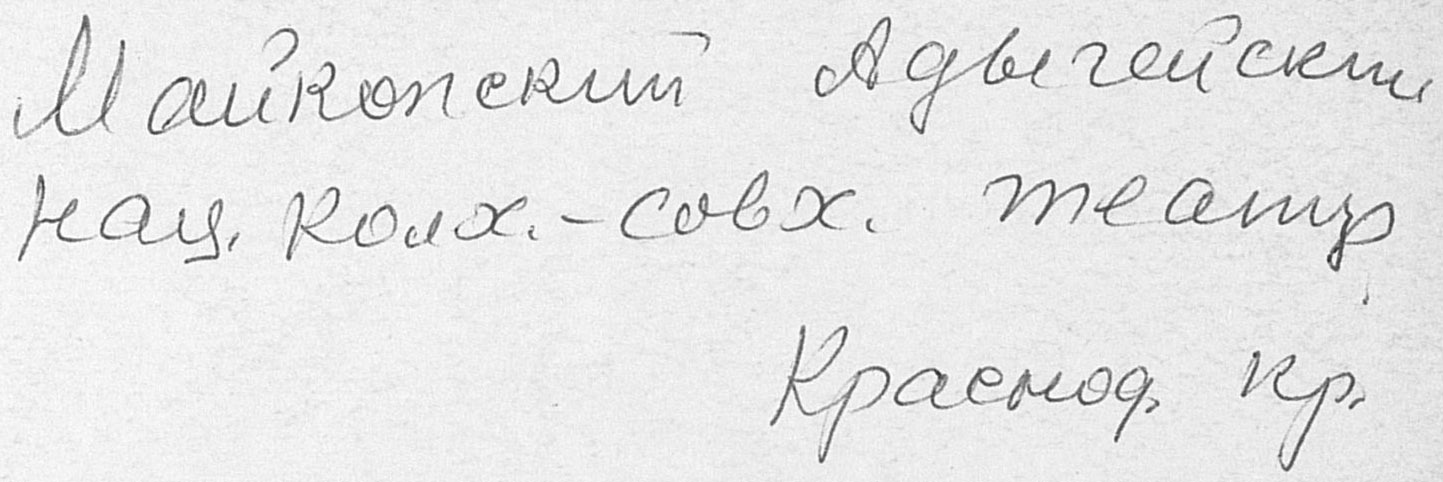 Майкопский Адыгейский
нац. колх.-совх. театр
Краснод. кр.